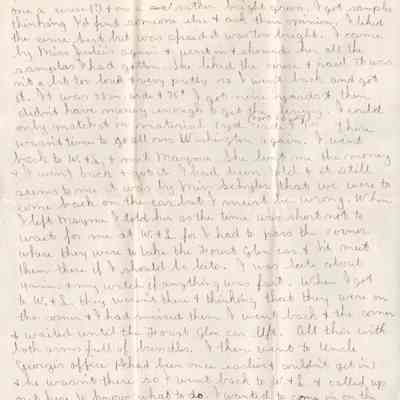 one a cerise (?) & one and rather bright green. I got samples
thinking I'd find someone else & ask their opinion. I liked
the cerise best but was afraid it was too bright. I came
by Miss again & went in & showed her all the
samples I had gotten. She liked the cerise & said it was
not a bit too loud & very pretty so I went back and got
it. It was wide & 78¢. I got nine yards & then
didn't have money enough to get the I could
only match it in material yd. There
wasn't time to go all over Washington again. I went
back to W. & L. & met Mayme. She lent me the money
& I went back & got it. I had been told & it still
seems to me it was by Miss that we were to
come back on the car but I must be wrong. When
I left Mayme I told her as the time was short not to
wait for me at W. & L. for I had to pass the corner
where they were to take the Forest Glen car & I'd meet
them there if I should be late. I was late about
& my watch if anything was fast. When I got
to W. & L. they weren't there & thinking that they were on
the corner & I had missed them I went back to the corner
& waited until the Forest Glen car left. All this with
both arms full of bundles. I then went to Uncle
George's office (had been once earlier & couldn't get in)
& he wasn't there so I went back to W. & L. & called up
out here to know what to do. I wanted to come in on the